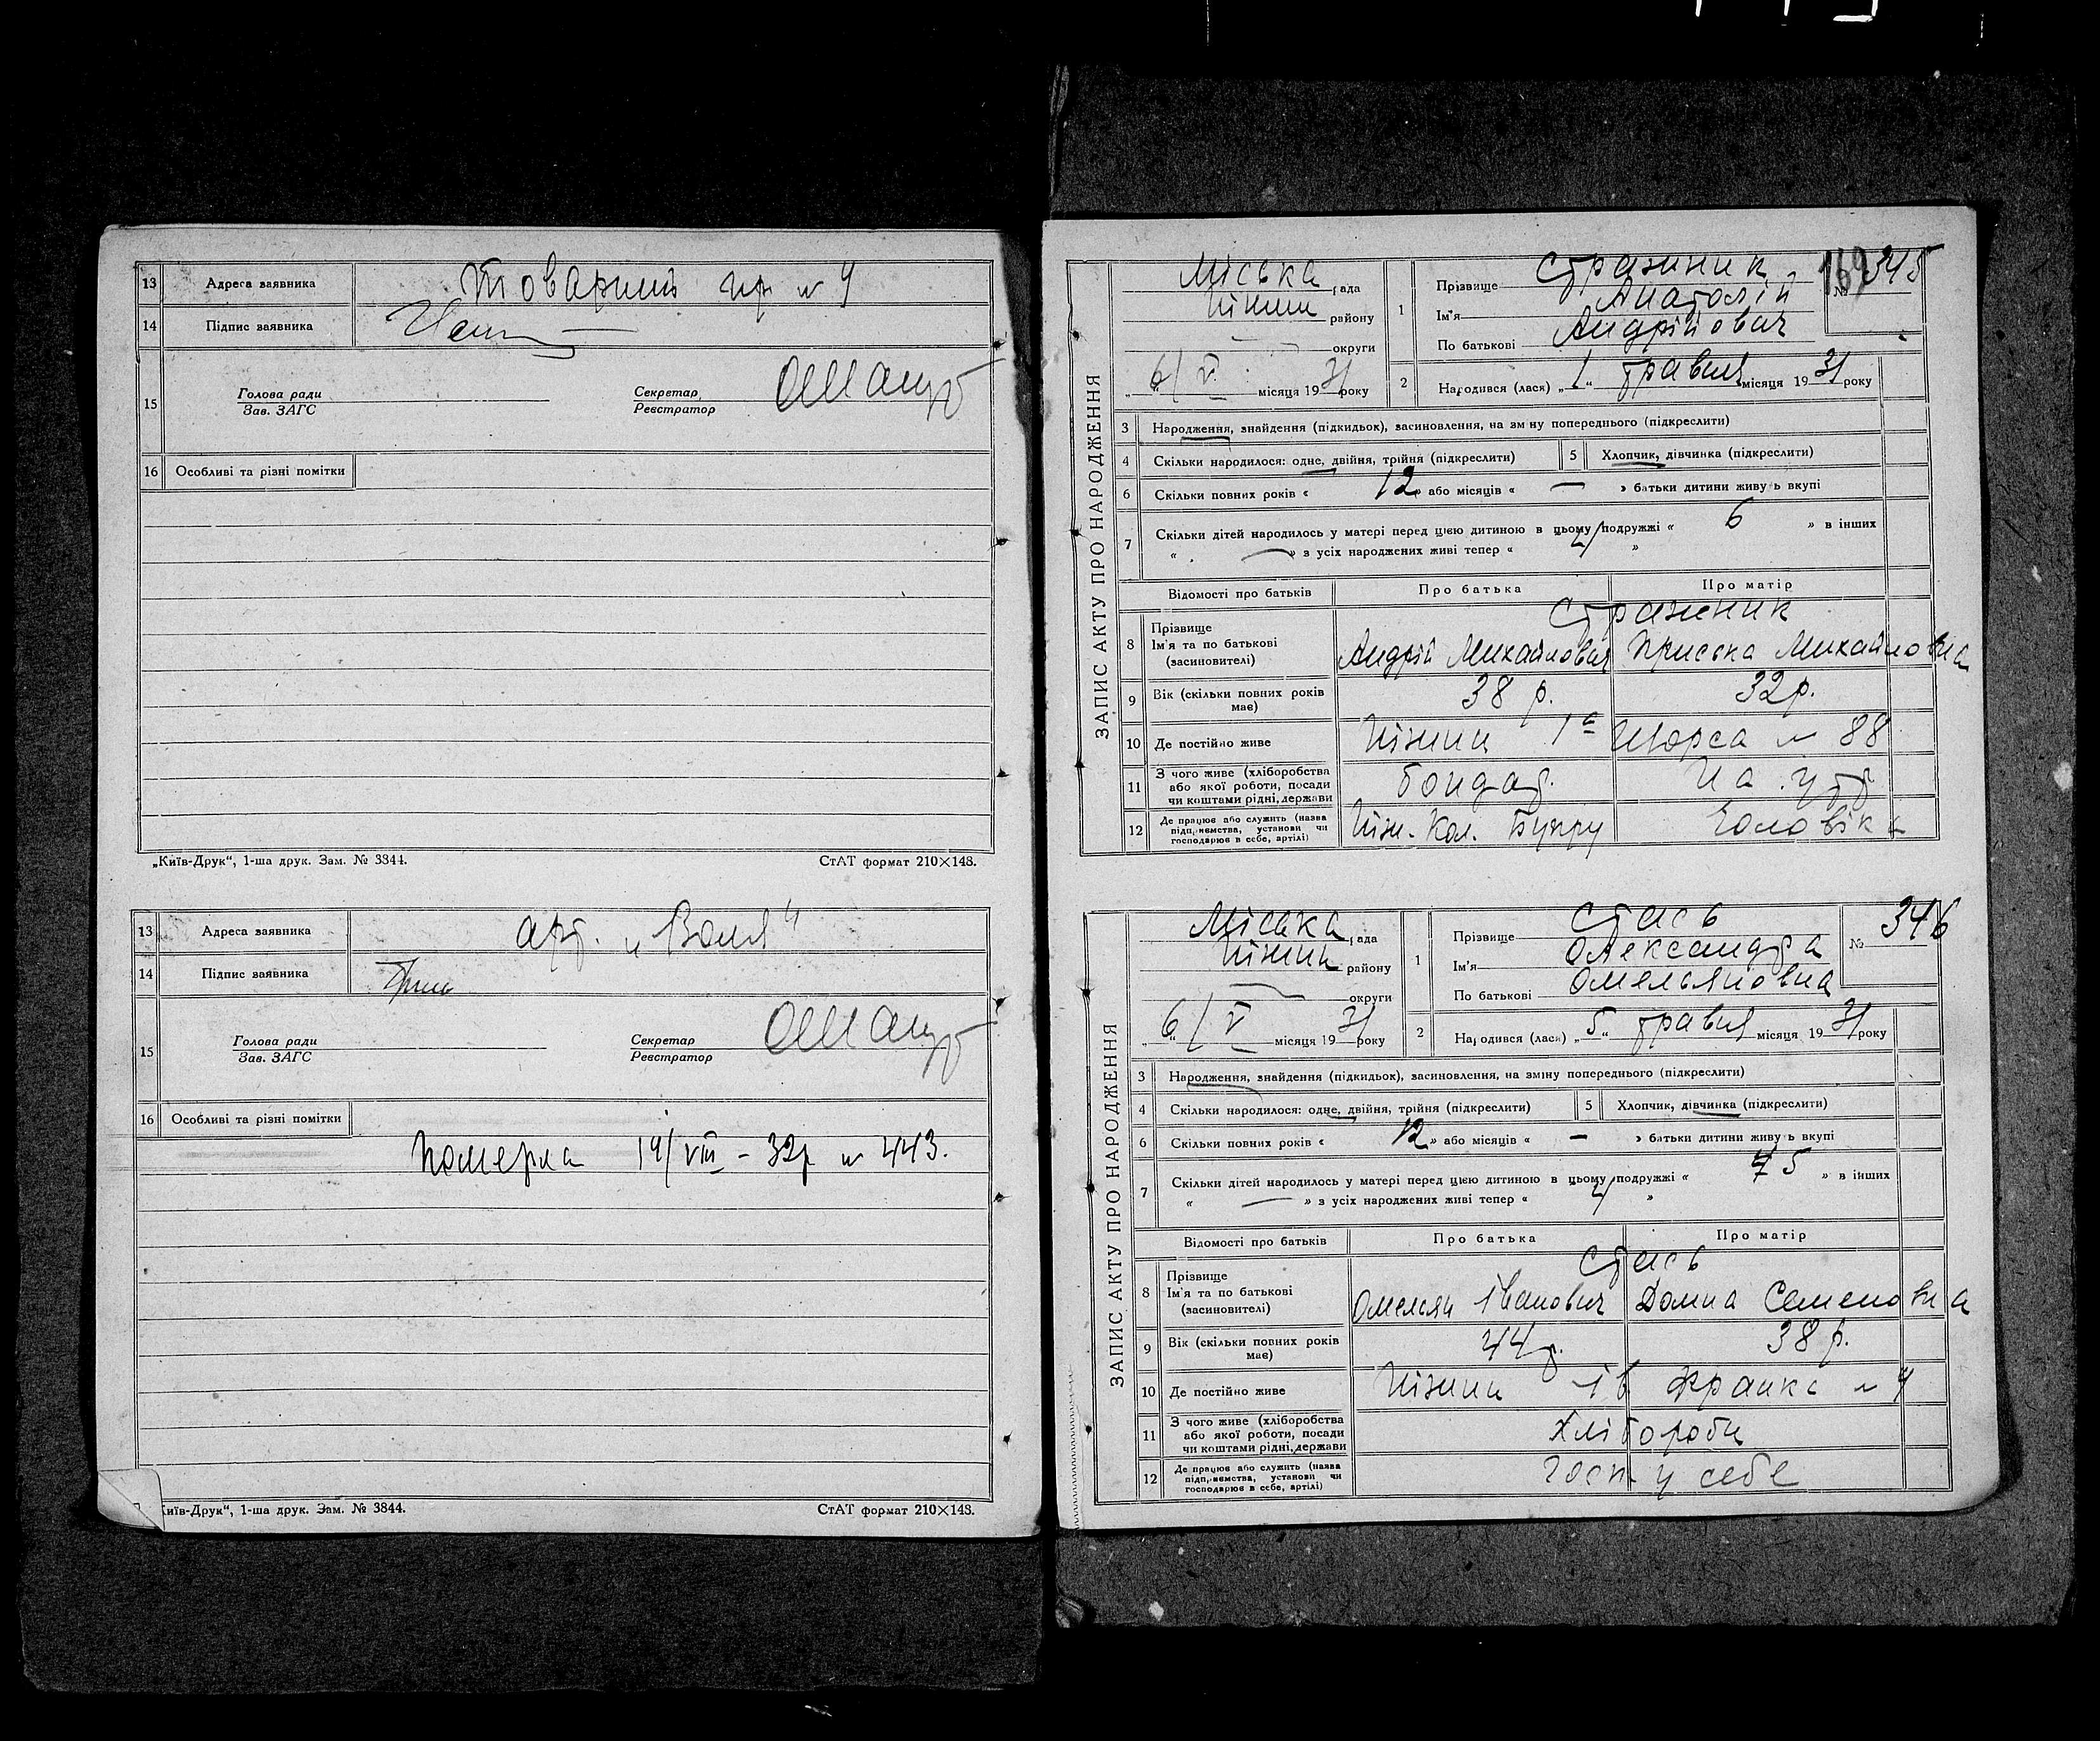 13 Адреса заявника Товарний № 4
14 Підпис заявника
15 Голова ради
Зав. ЗАГС
Секретар
Реєстратор
16 Особливі та різні помітки
„Київ-Друк“, 1-ша друк. Зам. № 3844. СтАТ формат 210×148.
13 Адреса заявника арт. „Воля“
14 Підпис заявника
15 Голова ради
Зав. ЗАГС
Секретар
Реєстратор
16 Особливі та різні помітки
Померла 19/VIII – 32р № 443.
иїв-Друк“, 1-ша друк. Зам. № 3844. СтАТ формат 210×148.
ЗАПИС АКТУ ПРО НАРОДЖЕННЯ
Міська рада
Ніжин району
округи
6/V місяця 1931 року
1 Прізвище Стражник
Ім'я Анатолій
По батькові Андрійович
№ 345
169
2 Народився (лася) „1“ травня місяця 1931 року
3 Народження, знайдення (підкидьок), засиновлення, на зміну попереднього (підкреслити)
4 Скільки народилося: одне, двійня, трійня (підкреслити) 5 Хлопчик, дівчинка (підкреслити)
6 Скільки повних років « 12 » або місяців « — » батьки дитини живуть вкупі
7 Скільки дітей народилось у матері перед цією дитиною в цьому подружжі « 6 » в інших
« — » з усіх народжених живі тепер « 4 »
Відомості про батьків Про батька Про матір
8 Прізвище
Ім'я та по батькові
(засиновителі)
Стражник
Андрій Михайлович Приська Михайловна
9 Вік (скільки повних років має) 38 р. 32р.
10 Де постійно живе Ніжин 1а Щорса № 88
11 З чого живе (хліборобства
або якої роботи, посади
чи коштами рідні, держави
Бондар. На утр
12 Де працює або служить (назва
підприємства, установи чи
господарює в себе, артілі)
Ніж. Кол. Бупру чоловіка
ЗАПИС АКТУ ПРО НАРОДЖЕННЯ
Міська рада
Ніжин району
округи
6/V місяця 1931 року
1 Прізвище Стась
Ім'я Олександра
По батькові Омельяновна
№ 346
2 Народився (лася) „5“ травня місяця 1931 року
3 Народження, знайдення (підкидьок), засиновлення, на зміну попереднього (підкреслити)
4 Скільки народилося: одне, двійня, трійня (підкреслити) 5 Хлопчик, дівчинка (підкреслити)
6 Скільки повних років « 12 » або місяців « — » батьки дитини живуть вкупі
7 Скільки дітей народилось у матері перед цією дитиною в цьому подружжі « 5 » в інших
« — » з усіх народжених живі тепер « 4 »
Відомості про батьків Про батька Про матір
8 Прізвище
Ім'я та по батькові
(засиновителі)
Стась
Омелян Іванович Домна Семеновна
9 Вік (скільки повних років має) 44р. 38 р.
10 Де постійно живе Ніжин Ів Франка № 4
11 З чого живе (хліборобства
або якої роботи, посади
чи коштами рідні, держави
Хлібороби
12 Де працює або служить (назва
підприємства, установи чи
господарює в себе, артілі)
Госп у себе